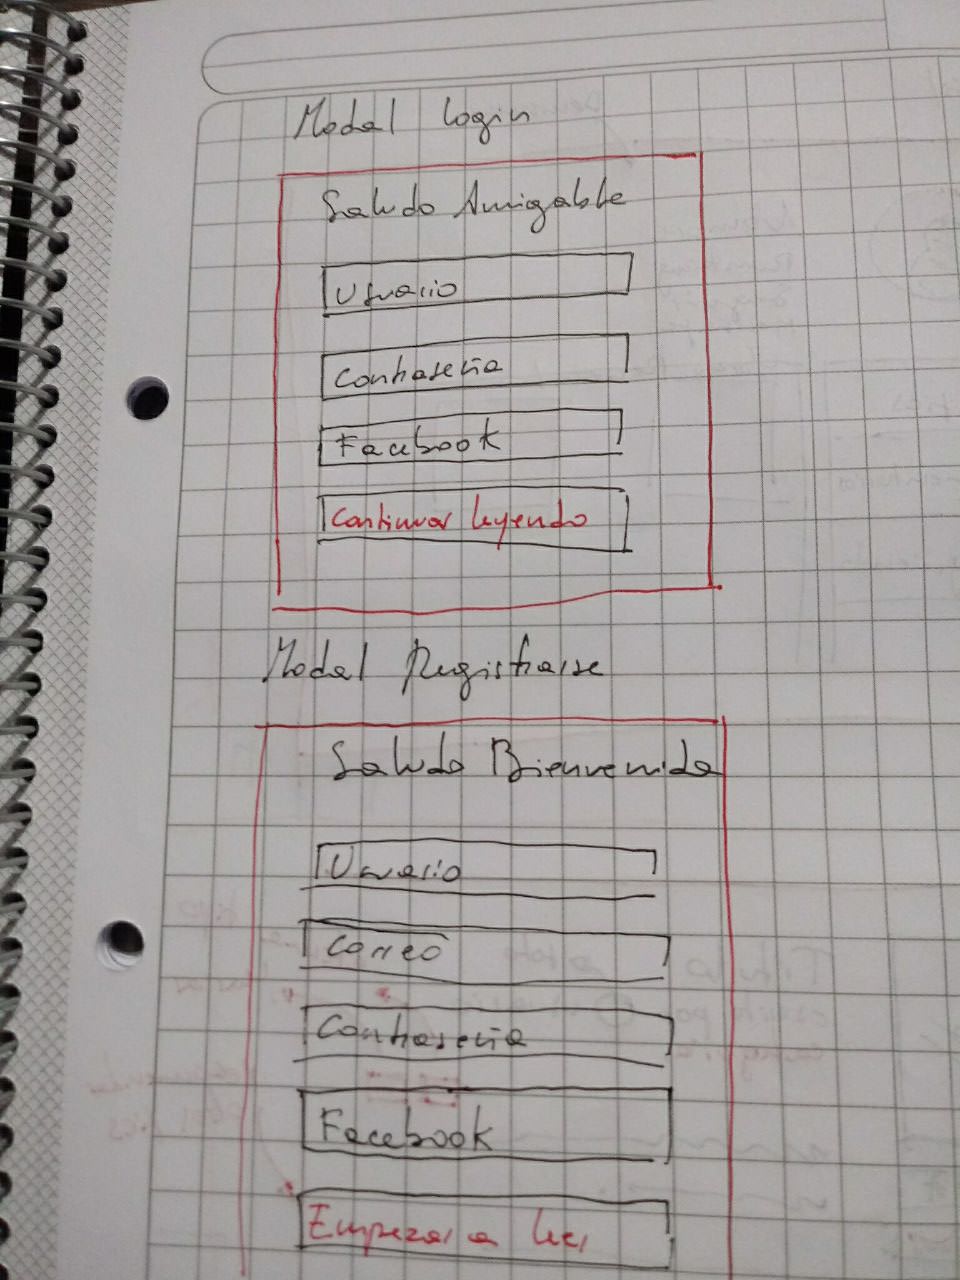 Modal Login
Saludo Amigable
Usuario
Contraseña
Facebook
Continuar leyendo
Modal Registrarse
Saludo Bienvenida
Usuario
Correo
Contraseña
Facebook
Empezar a leer